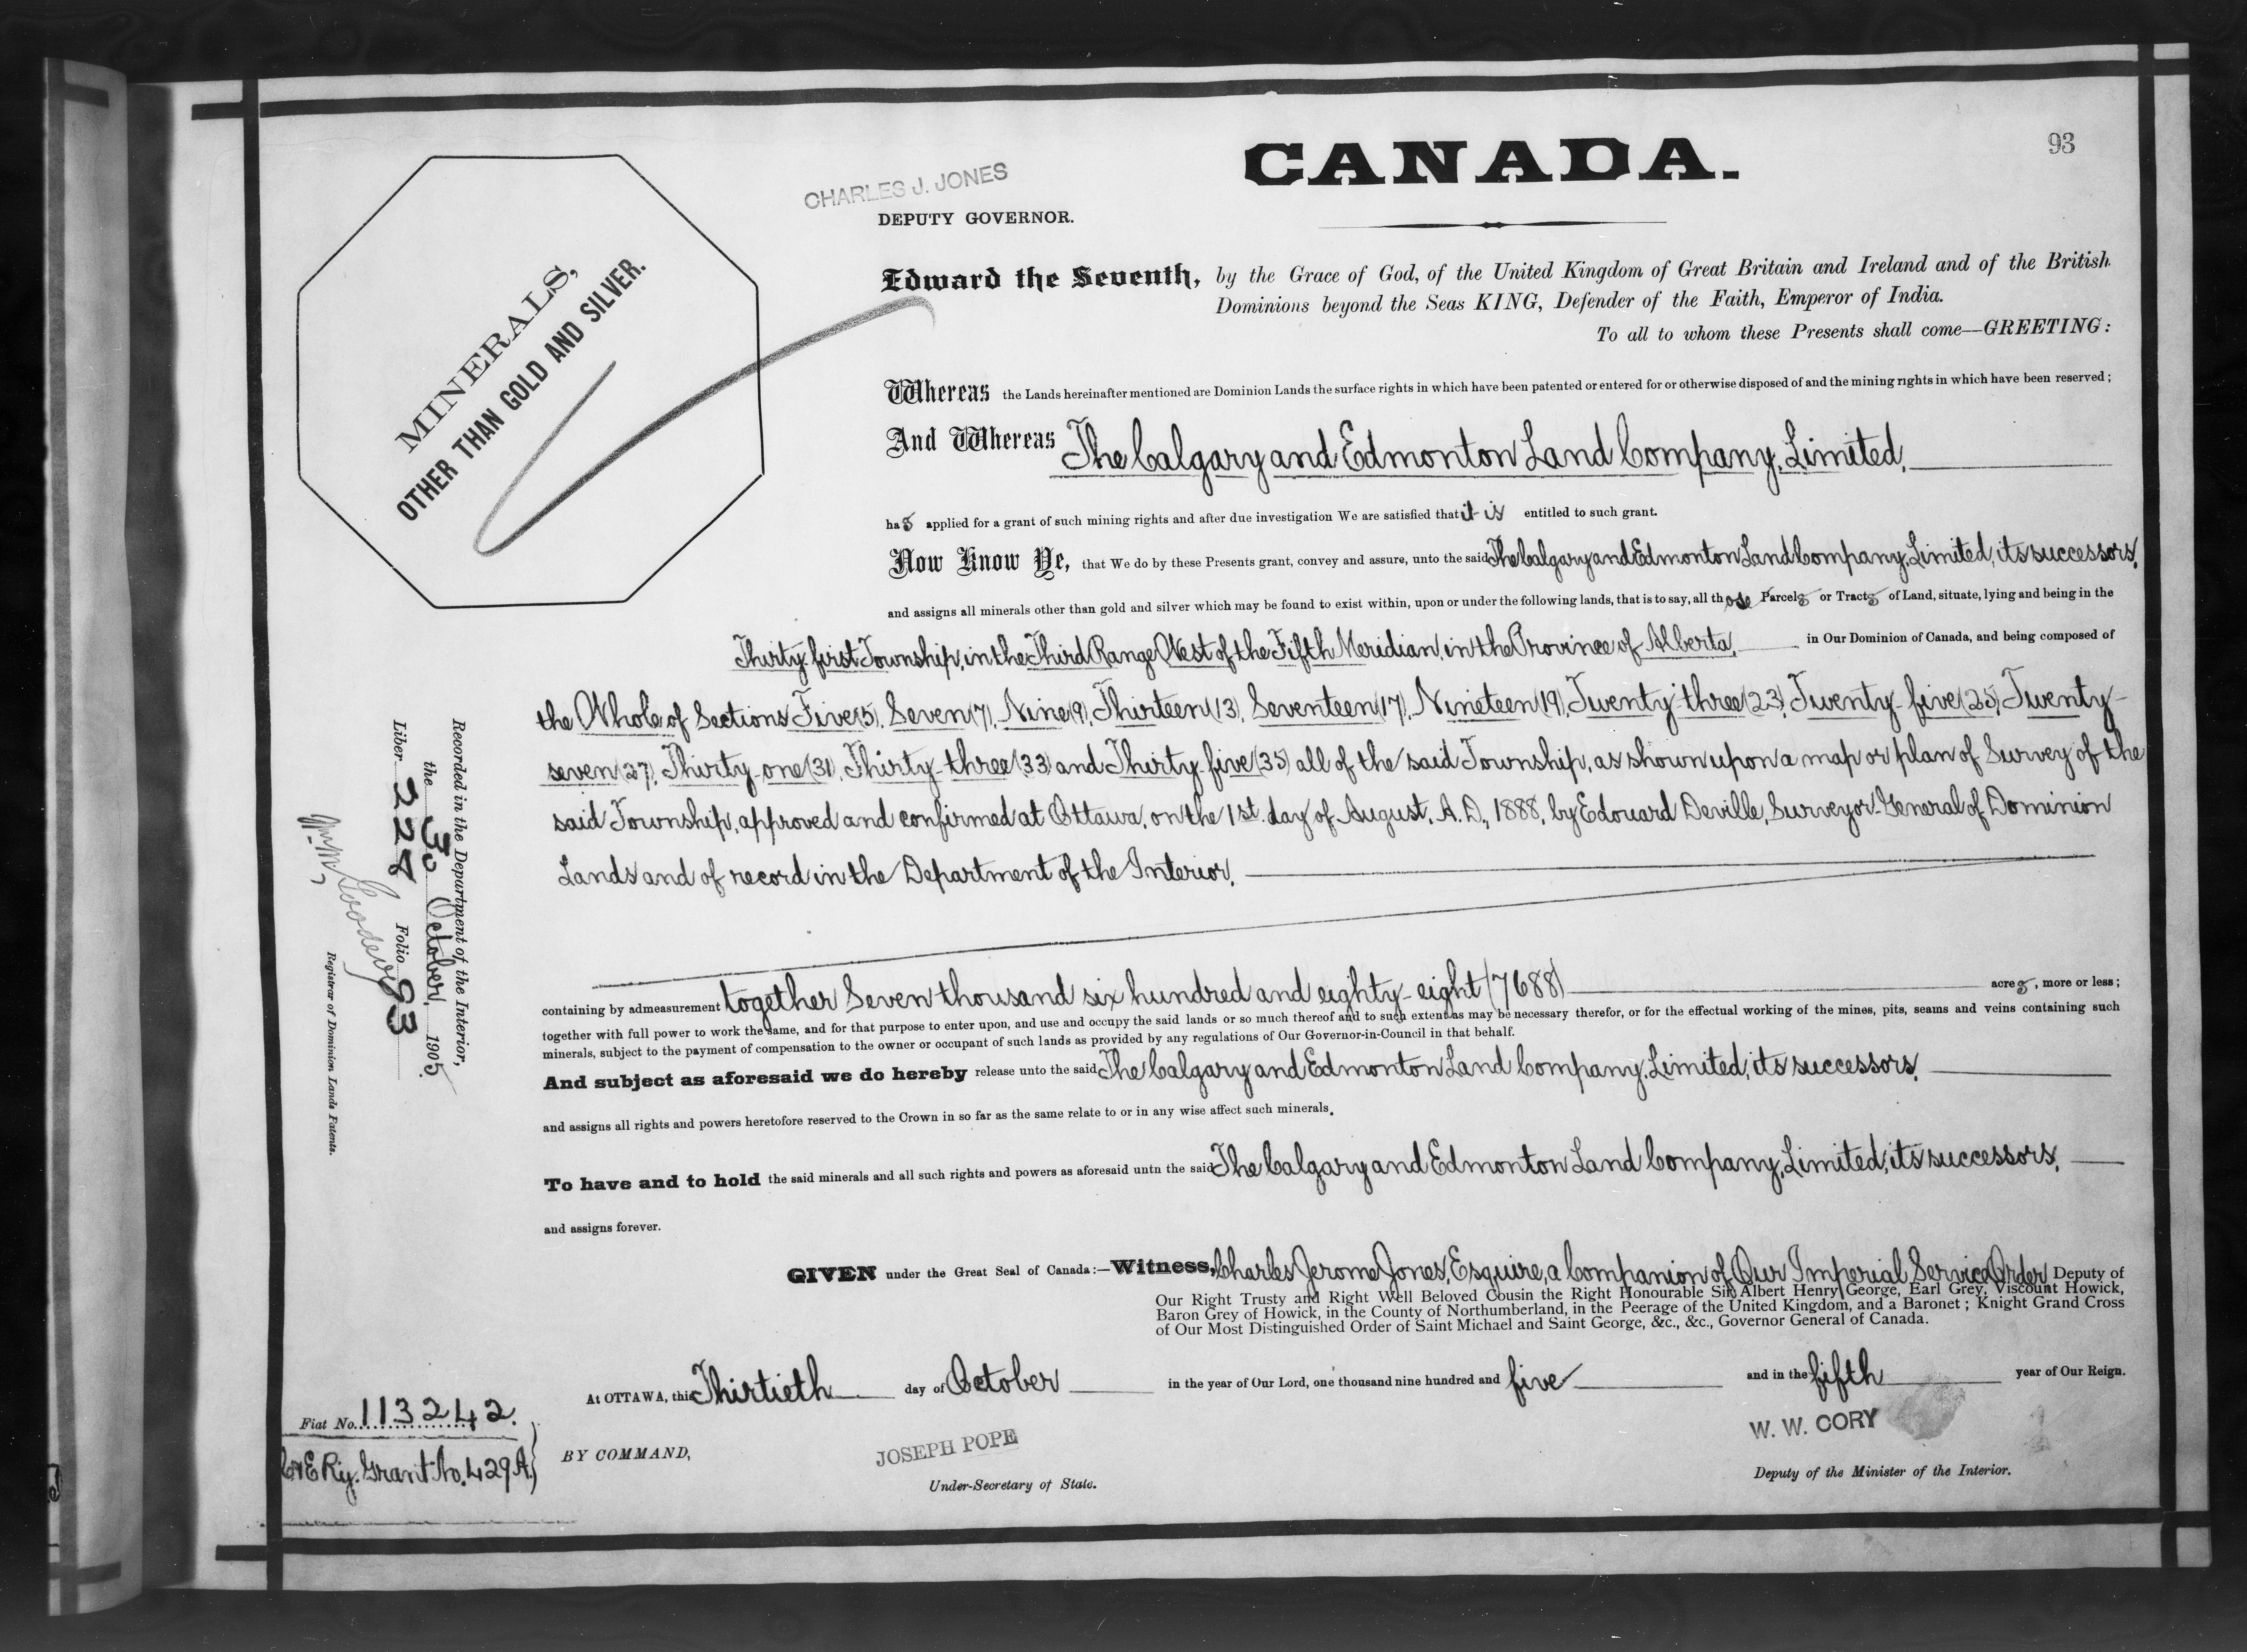 93
CANADA.
CHARLES J. JONES
DEPUTY GOVERNOR.
MINERALS,
OTHER THAN GOLD AND SILVER.
Edward the Seventh, by the Grace of God, of the United Kingdom of Great Britain and Ireland and of the British
Dominions beyond the Seas KING, Defender of the Faith, Emperor of India.
To all to whom these Presents shall come—GREETING:
Whereas the Lands hereinafter mentioned are Dominion Lands the surface rights in which have been patented or entered for or otherwise disposed of and the mining rights in which have been reserved;
And Whereas The Calgary and Edmonton Land Company, Limited,
has applied for a grant of such mining rights and after due investigation We are satisfied that it is entitled to such grant.
Now Know Ye, that We do by these Presents grant, convey and assure, unto the said The Calgary and Edmonton Land Company, Limited, its successors,
and assigns all minerals other than gold and silver which may be found to exist within, upon or under the following lands, that is to say, all those Parcels or Tracts of Land, situate, lying and being in the
Thirty-first Township, in the Third Range West of the Fifth Meridian, in the Province of Alberta, in Our Dominion of Canada, and being composed of
the Whole of Sections Five (5), Seven (7), Nine (9), Thirteen (13), Seventeen (17), Nineteen (19), Twenty-three (23), Twenty-five (25), Twenty-
seven (27), Thirty-one (31), Thirty-three (33) and Thirty-five (35) all of the said Township, as shown upon a map or plan of Survey of the
said Township, approved and confirmed at Ottawa, on the 1st. day of August, A.D., 1888, by Edouard Deville, Surveyor-General of Dominion
Lands and of record in the Department of the Interior,
containing by admeasurement together Seven thousand six hundred and eighty-eight (7688) acres, more or less;
together with full power to work the same, and for that purpose to enter upon, and use and occupy the said lands or so much thereof and to such extent as may be necessary therefor, or for the effectual working of the mines, pits, seams and veins containing such
minerals, subject to the payment of compensation to the owner or occupant of such lands as provided by any regulations of Our Governor-in-Council in that behalf.
And subject as aforesaid we do hereby release unto the said The Calgary and Edmonton Land Company, Limited, its successors,
and assigns all rights and powers heretofore reserved to the Crown in so far as the same relate to or in any wise affect such minerals.
To have and to hold the said minerals and all such rights and powers as aforesaid untn the said The Calgary and Edmonton Land Company, Limited, its successors,
and assigns forever.
GIVEN under the Great Seal of Canada:—Witness, Charles Jerome Jones, Esquire, a Companion of Our Imperial Service Order Deputy of
Our Right Trusty and Right Well Beloved Cousin the Right Honourable Sir Albert Henry George, Earl Grey, Viscount Howick,
Baron Grey of Howick, in the County of Northumberland, in the Peerage of the United Kingdom, and a Baronet; Knight Grand Cross
of Our Most Distinguished Order of Saint Michael and Saint George, &c., &c., Governor General of Canada.
At OTTAWA, this Thirtieth day of October in the year of Our Lord, one thousand nine hundred and five and in the fifth year of Our Reign.
BY COMMAND,
JOSEPH POPE
Under-Secretary of State.
W. W. CORY
Deputy of the Minister of the Interior.
Recorded in the Department of the Interior,
the 30 October, 1905
Liber 228 Folio 93
Registrar of Dominion Lands Patents.
Fiat No. 113242.
C&E Ry. Grant No. 429A.